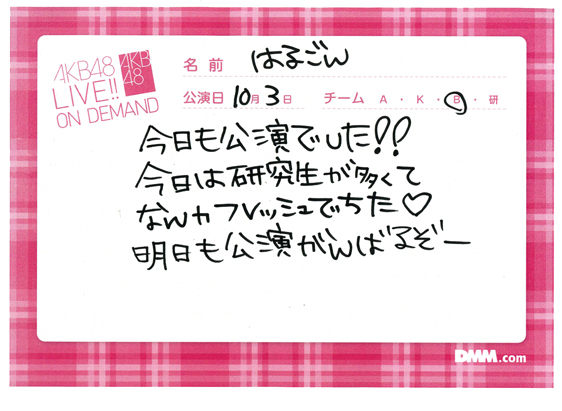 AKB48
LIVE!!
ON DEMAND
AKB
48
名前 はるごん
公演日 10月3日 チーム A・K・B・研
今日も公演でした!!
今日は研究生が多くて
なんカフレッシュでちた♡
明日も公演がんばるぞー
DMM.com